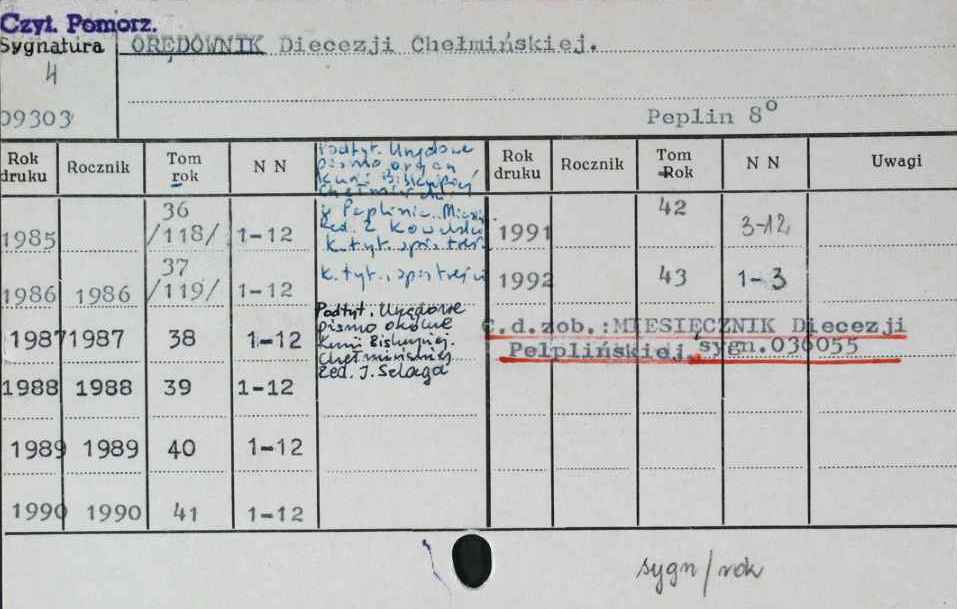 Czyt. Pomorz.
Sygnatura
ORĘDOWNIK Diecezji Chełmińskiej.
4
09303
Peplin 8°
Rok druku Rocznik Tom rok N N Rok druku Rocznik Tom Rok N N Uwagi
Podtyt. Urzędowe
pismo organ
Kurii Biskupiej
Chełmińskiej
w Peplinie. Mies.
Red. Z. Kowalski
K. tyt. spis treści
1985 36 /118/ 1-12
1991 42 3-12
K. tyt., spis treści
1986 1986 37 /119/ 1-12
1992 43 1-3
Podtyt. Urzędowe
pismo okólne
Kurii Biskupiej.
Chełmińskiej
Red. J. Szlaga
1987 1987 38 1-12
C.d.zob.:MIESIĘCZNIK Diecezji
Pelplińskiej, sygn.036055
1988 1988 39 1-12
1989 1989 40 1-12
1990 1990 41 1-12
sygn/rok